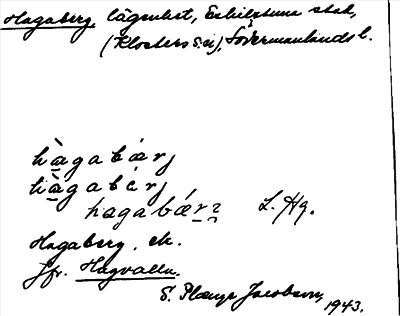 Hagaberg, lägenhet, Eskilstuna stad,
(Klosters s:n), Södermanlands l.
hàgabærj
hàgabérj
hagabær
L. Hg.
Hagaberg, ek.
Jfr. Hagvalla.
S. Plange Jacobson, 1943.